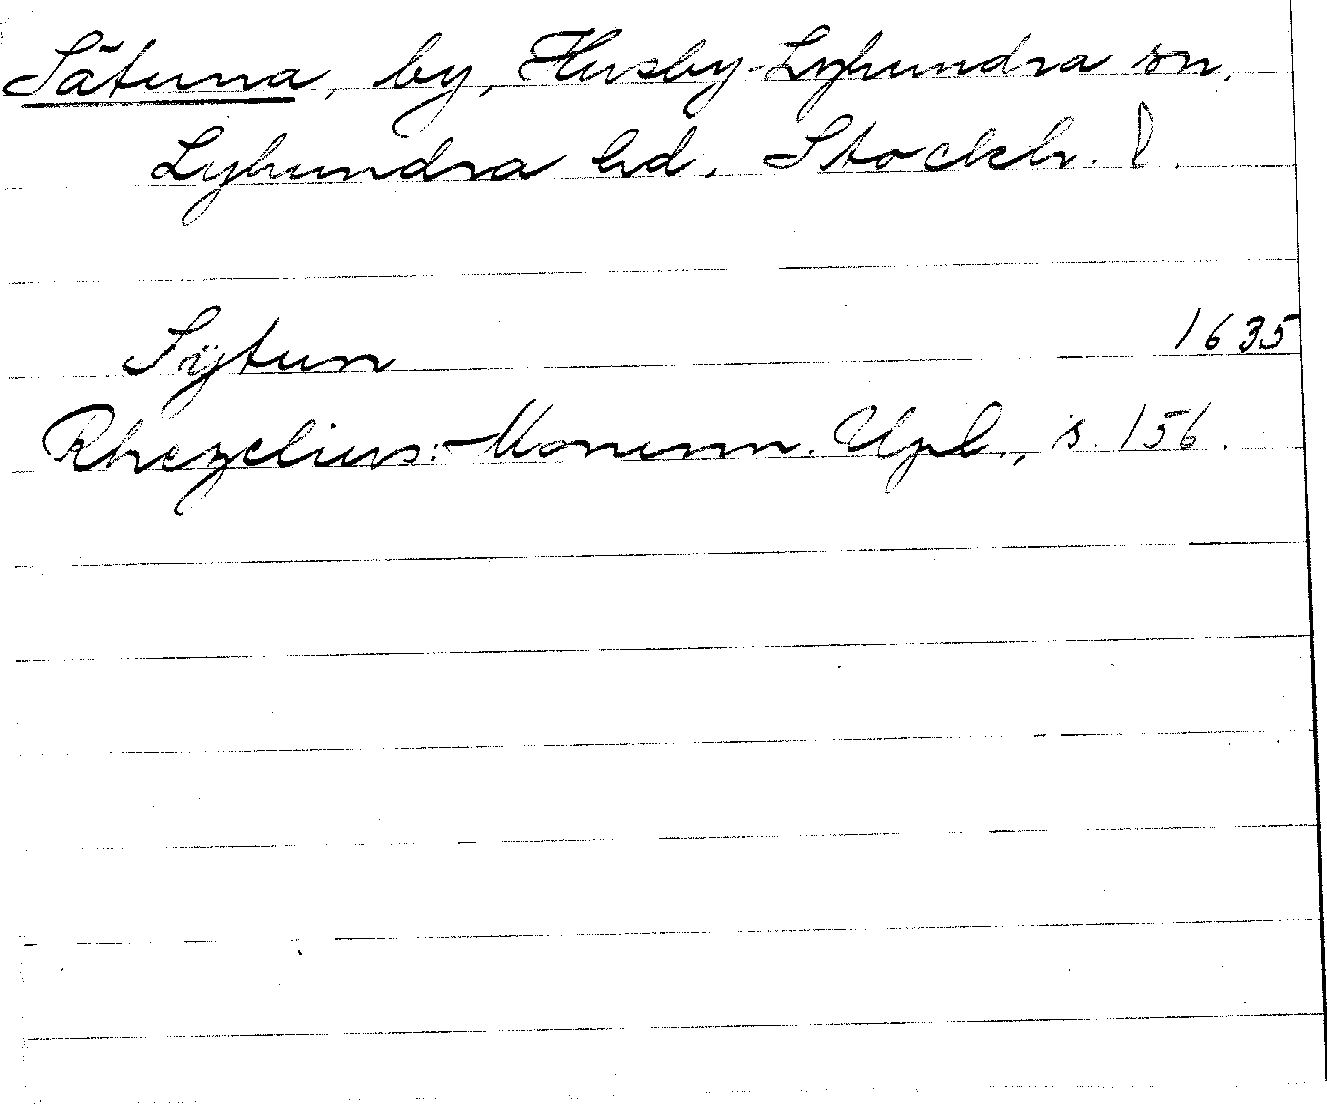 Sätuna, by, Husby-Lyhundra sn,
Lyhundra hd. Stockh. l.
Sÿtun 1635
Rhezelius: Monum. Upl., s. 156.